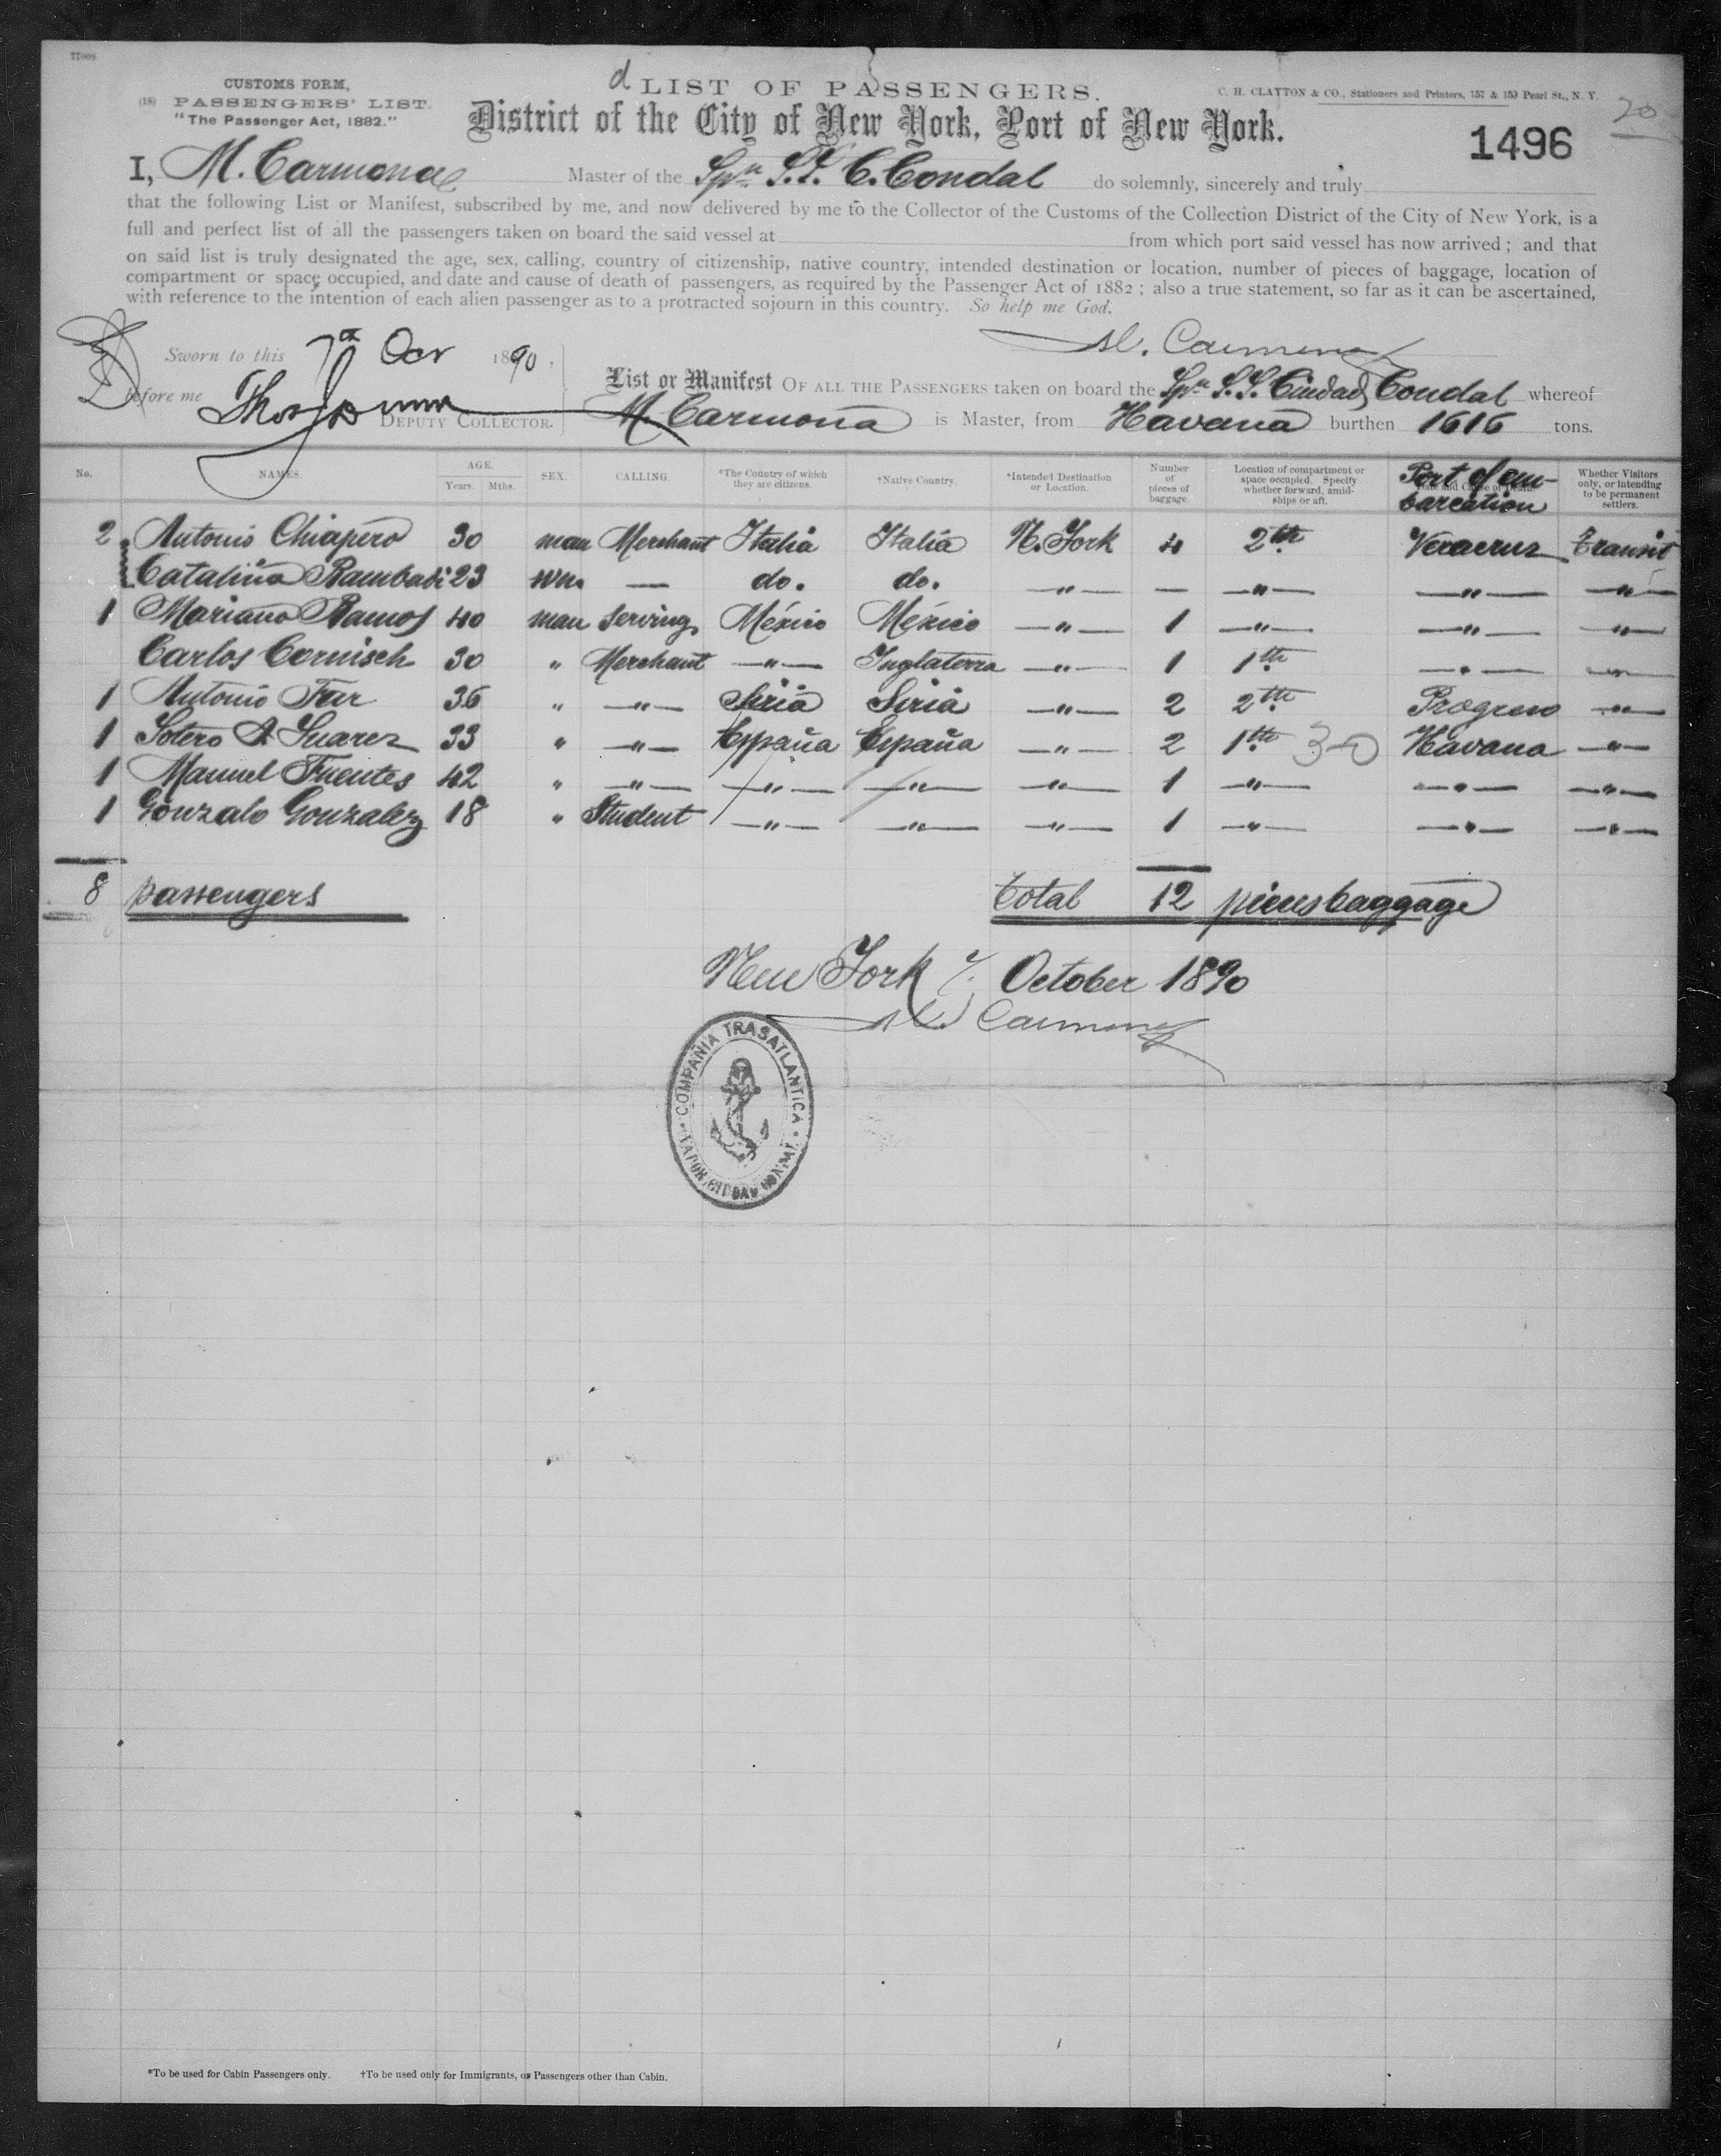 77008
CUSTOMS FORM,
(18) PASSENGERS' LIST.
"The Passenger Act, 1882."
d LIST OF PASSENGERS.
District of the City of New York, Port of New York.
C. H. CLAYTON & CO., Stationers and Printers, 157 & 159 Pearl St., N. Y.
20
1496
I, M. Carmona Master of the Spn S.S. C. Condal do solemnly, sincerely and truly
that the following List or Manifest, subscribed by me, and now delivered by me to the Collector of the Customs of the Collection District of the City of New York, is a
full and perfect list of all the passengers taken on board the said vessel at from which port said vessel has now arrived; and that
on said list is truly designated the age, sex, calling, country of citizenship, native country, intended destination or location, number of pieces of baggage, location of
compartment or space occupied, and date and cause of death of passengers, as required by the Passenger Act of 1882; also a true statement, so far as it can be ascertained,
with reference to the intention of each alien passenger as to a protracted sojourn in this country. So help me God.
Sworn to this 7th Oct 1890.
M. Carmona
Before me
DEPUTY COLLECTOR.
List or Manifest OF ALL THE PASSENGERS taken on board the Spn S.S. Ciudad Condal whereof
M. Carmona is Master, from Havana burthen 1616 tons.
No. NAMES. AGE. Years. Mths. SEX. CALLING. *The Country of which they are citizens. †Native Country. †Intended Destination or Location. Number of pieces of baggage. Location of compartment or space occupied. Specify whether forward, amidships or aft. Date and Cause of Death. Port of embarcation Whether Visitors only, or intending to be permanent settlers.
2 Antonio Chiapero 30 man Merchant Italia Italia N. York 4 2th Veracruz Transit
Catalina Rambadi 23 wn. — do. do. —"— — —"— —"— —"—
1 Mariano Ramos 40 man serving México México —"— 1 —"— —"— —"—
Carlos Cornisch 30 " Merchant —"— Inglaterra —"— 1 1th —"— —"—
1 Antonio Far 36 " —"— Siria Siria —"— 2 2th Progreso —"—
1 Sotero A Suarez 33 " —"— España España —"— 2 1th 30 Havana —"—
1 Manuel Fuentes 42 " —"— —"— —"— —"— 1 —"— —"— —"—
1 Gonzalo Gonzalez 18 " Student —"— —"— —"— 1 —"— —"— —"—
8 passengers total 12 pieces baggage
New York 7 October 1890
M. Carmona
COMPAÑIA TRASATLANTICA
VAPOR CIUDAD CONDAL
*To be used for Cabin Passengers only. †To be used only for Immigrants, or Passengers other than Cabin.